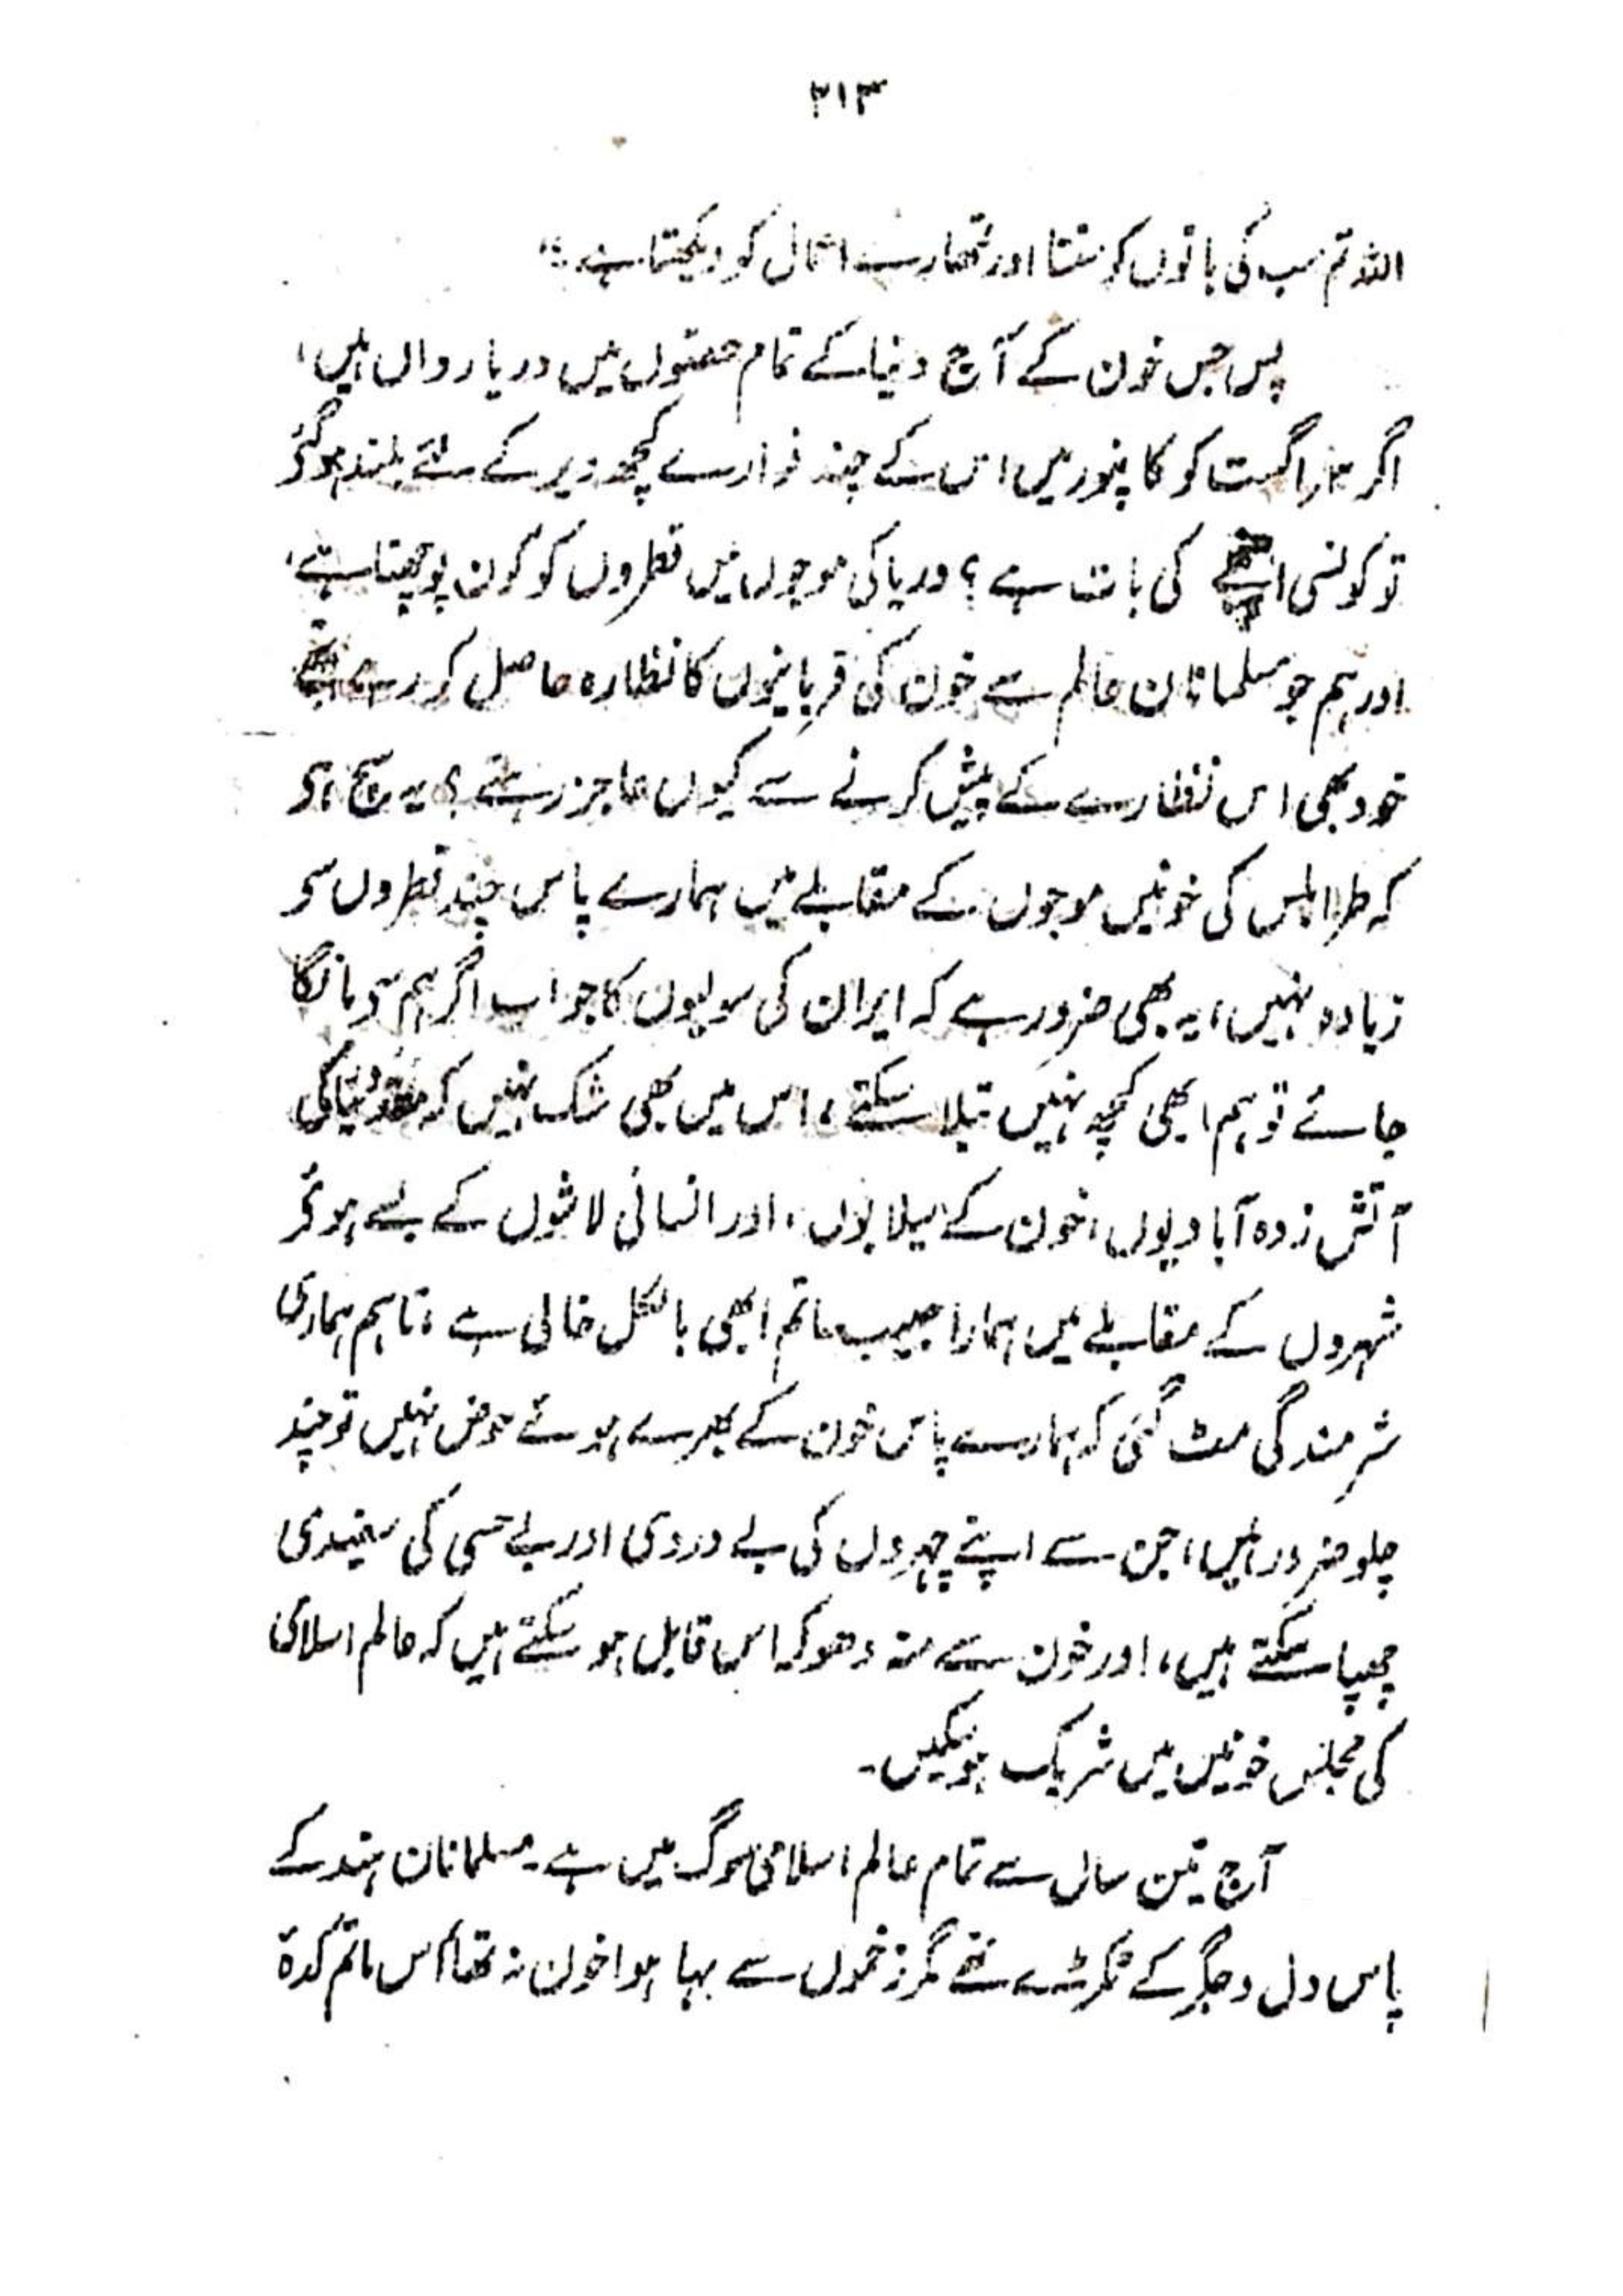 ۲۱۳
اللہ تم سب کی باتوں کو سنتا اور تمھارے اعمال کو دیکھتا ہے "
پس جس خون کے آج دنیا کے تمام حصّوں میں دریا رواں ہیں،
اگر ۳؍ اگست کو کانپور میں اس کے چند فوارے کچھ دیر کے لئے بلند ہو گئے
تو کونسی کی بات ہے؟ دریا کی موجوں میں قطروں کو کون پوچھتا ہے،
اور ہم جو مسلمانان عالم سے خون کی قربانیوں کا نظارہ حاصل کر رہے تھے
خود بھی اس نظارے کے پیش کرنے سے کیوں عاجز رہتے؟ یہ سچ ہے
کہ طرابلس کی خونیں موجوں کے مقابلے میں ہمارے پاس چند قطروں سے
زیادہ نہیں، یہ بھی ضرور ہے کہ ایران کی سولیوں کا جواب اگر ہم سے مانگا
جائے تو ہم ابھی کچھ نہیں بتلا سکتے، اس میں بھی شک نہیں کہ مقدونیا کی
آتش زدہ آبادیوں، خون کے سیلابوں، اور انسانی لاشوں کے بسے ہوئے
شہروں کے مقابلے میں ہمارا جیب ماتم ابھی بالکل خالی ہے، تاہم ہماری
شرمندگی مٹ گئی کہ ہمارے پاس خون کے بھرے ہوئے حوض نہیں تو چند
چلو ضرور ہیں، جن سے اپنے چہروں کی بے دردی اور بے حسی کی سفیدی
چھپا سکتے ہیں، اور خون سے منہ دھوکر اس قابل ہو سکتے ہیں کہ عالم اسلامی
کی مجلس خونیں میں شریک ہو سکیں۔
آج تین سال سے تمام عالم اسلامی سوگ میں ہے۔ مسلمانان ہند کے
پاس دل و جگر کے ٹکڑے تھے مگر زخموں سے بہا ہوا خون نہ تھا اس ماتم کدۂ